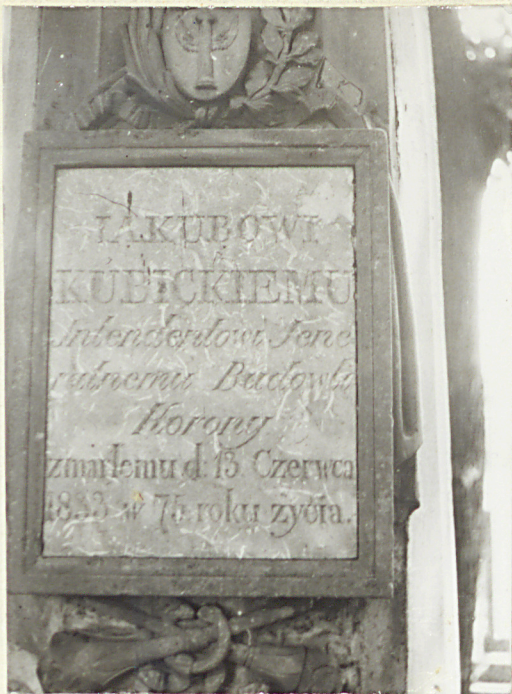 IAKUBOWI
KUBICKIEMU
Intendentowi Jene
ralnemu Budowli
Korony
zmarłemu d: 13 Czerwca
1833 w 75 roku życia.